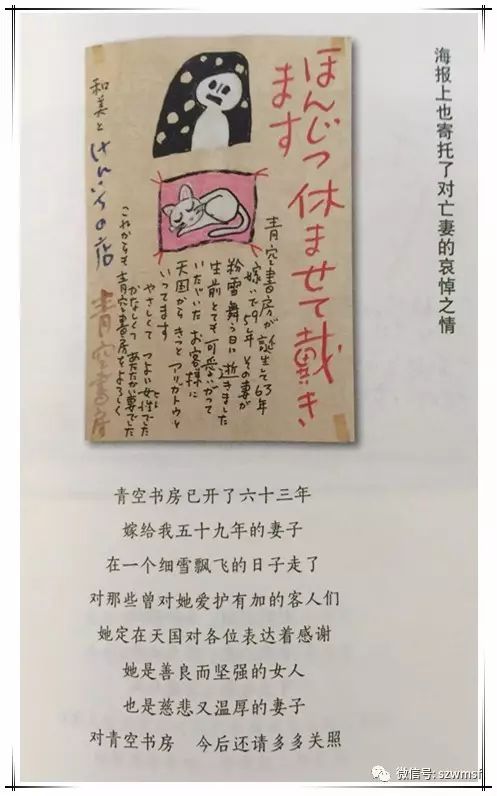 海报上也寄托了对亡妻的哀悼之情
ほんじつ休ませて戴き
ます
青空書房が誕生して63年
嫁いで59年 その妻が
粉雪舞う日に逝きました
生前とても可愛いがって
いたゞいたお客様に
天国からきっとアリガトウと
いってます
やさしくて つよい女性でした
かなしくて あたたかい妻でした
これからも青空書房をよろしく
和美と けんいちの店 青空書房
青空书房已开了六十三年
嫁给我五十九年的妻子
在一个细雪飘飞的日子走了
对那些曾对她爱护有加的客人们
她定在天国对各位表达着感谢
她是善良而坚强的女人
也是慈悲又温厚的妻子
对青空书房 今后还请多多关照
微信号: szwmsf